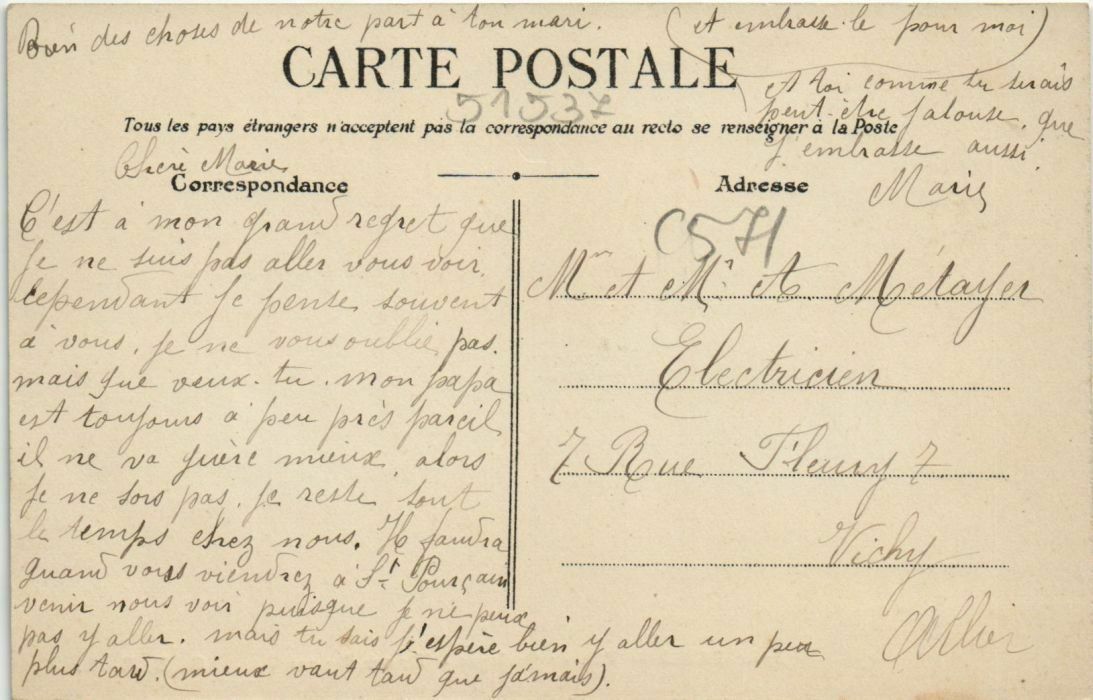 Bien des choses de notre part à ton mari. (et embrasse-le pour moi)
CARTE POSTALE
51537
et toi comme tu serais
peut-être jalouse, que
j'embrasse aussi.
Marie
Tous les pays étrangers n'acceptent pas la correspondance au recto se renseigner à la Poste
Chère Marie
Correspondance
C'est à mon grand regret que
je ne suis pas aller vous voir.
Cependant je pense souvent
à vous, je ne vous oublie pas.
mais que veux-tu. mon papa
est toujours à peu près pareil
il ne va guère mieux, alors
je ne sors pas, je reste tout
le temps chez nous. Il faudra
quand vous viendrez à St Pourçain
venir nous voir puisque je ne peux
pas y aller. mais tu sais j'espère bien y aller un peu
plus tard. (mieux vaut tard que jamais).
Adresse
C571
Mr et Me A. Métayer
Electricien
7 Rue Fleury 7
Vichy
Allier